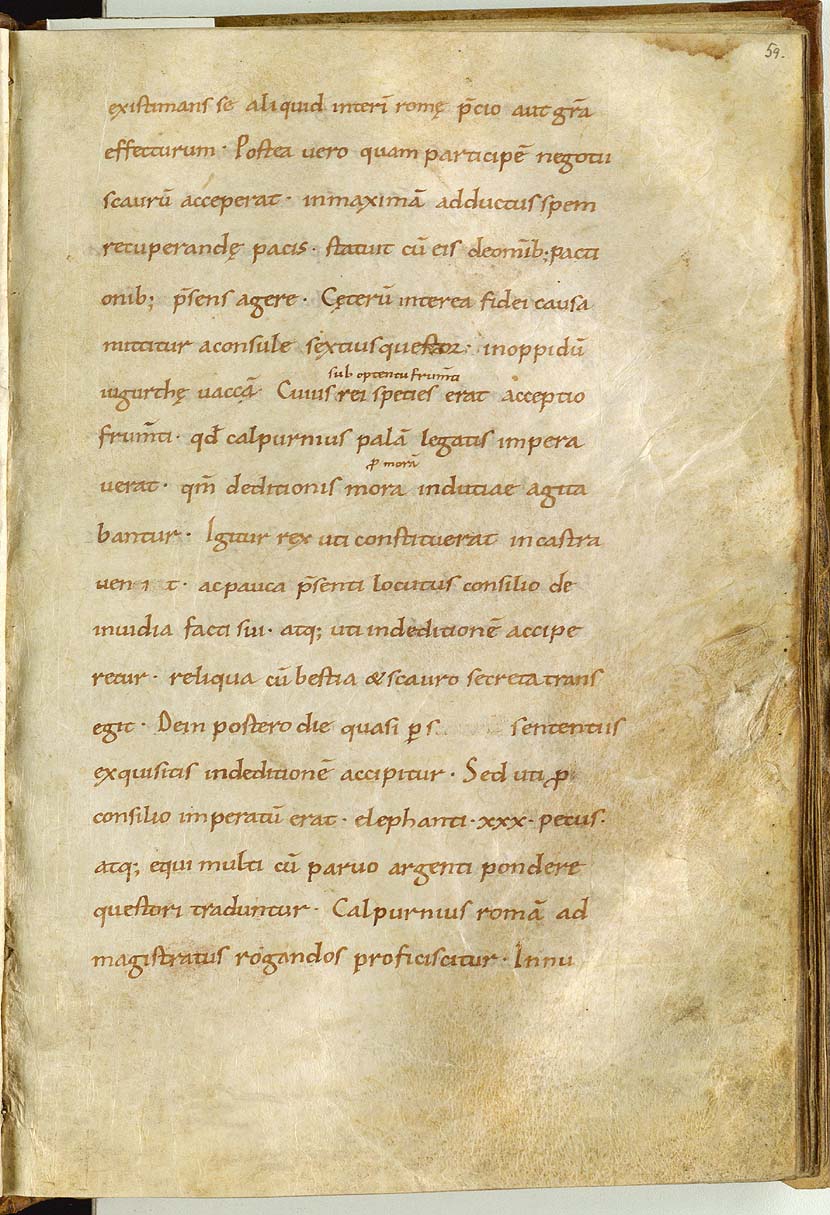 59.
existimans se aliquid interī romę p̄cio aut gr̄a
effecturum · Postea uero quam participē negotii
scaurū acceperat · inmaximā adductus spem
recuperandę pacis · statuit cū eis deomīb; pacti
onib; p̄sens agere · Cęterū interea fidei causa
mittitur aconsule sextius questor · inoppidū
iugurthę uaccā · Cuius rei species erat acceptio
sub optentu frum̄ti
frum̄ti · qd̄ calpurnius palā legatis impera
uerat · qm̄ deditionis mora indutiae agita
ꝓ morā
bantur · Igitur rex uti constituerat incastra
uen i t · acpauca p̄senti locutus consilio de
inuidia facti sui · atq; uti indeditionē accipe
retur · reliqua cū bestia & scauro secreta trans
egit · Dein postero die quasi ꝑ s sententiis
exquisitis indeditionē accipitur · Sed uti ꝓ
consilio imperatū erat · elephanti · xxx · pecus ·
atq; equi multi cū paruo argenti pondere
questori traduntur · Calpurnius romā ad
magistratus rogandos proficiscitur · Innu